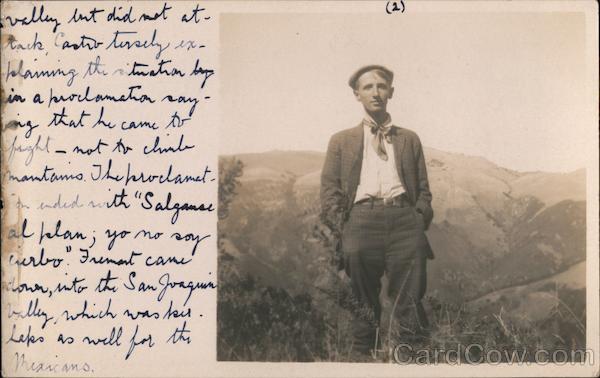 (2)
valley but did not at-
tack, Castro tersely ex-
plaining the situation by
in a proclamation say-
ing that he came to
fight - not to climb
mountains. The proclamat-
ion ended with "Salganse
al plan; yo no soy
cierbo". Fremont came
down, into the San Joaquin
Valley, which was per-
haps as well for the
Mexicans.
CardCow.com